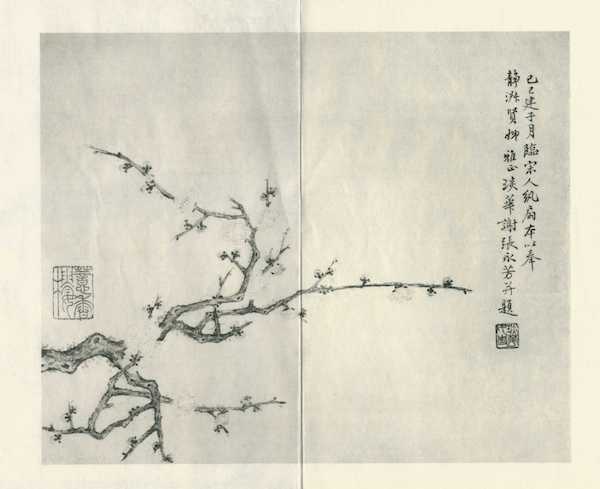 己巳建子月臨宋人紈扇本以奉
靜淑賢姊雅正淡華謝張永芳并題